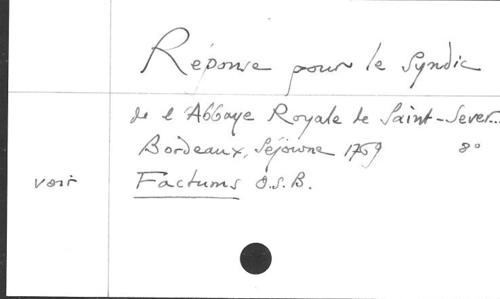 Réponse pour le Syndic
de l'Abbaye Royale de Saint-Sever...
Bordeaux, Séjourné 1769 8°
voir Factums O.S.B.